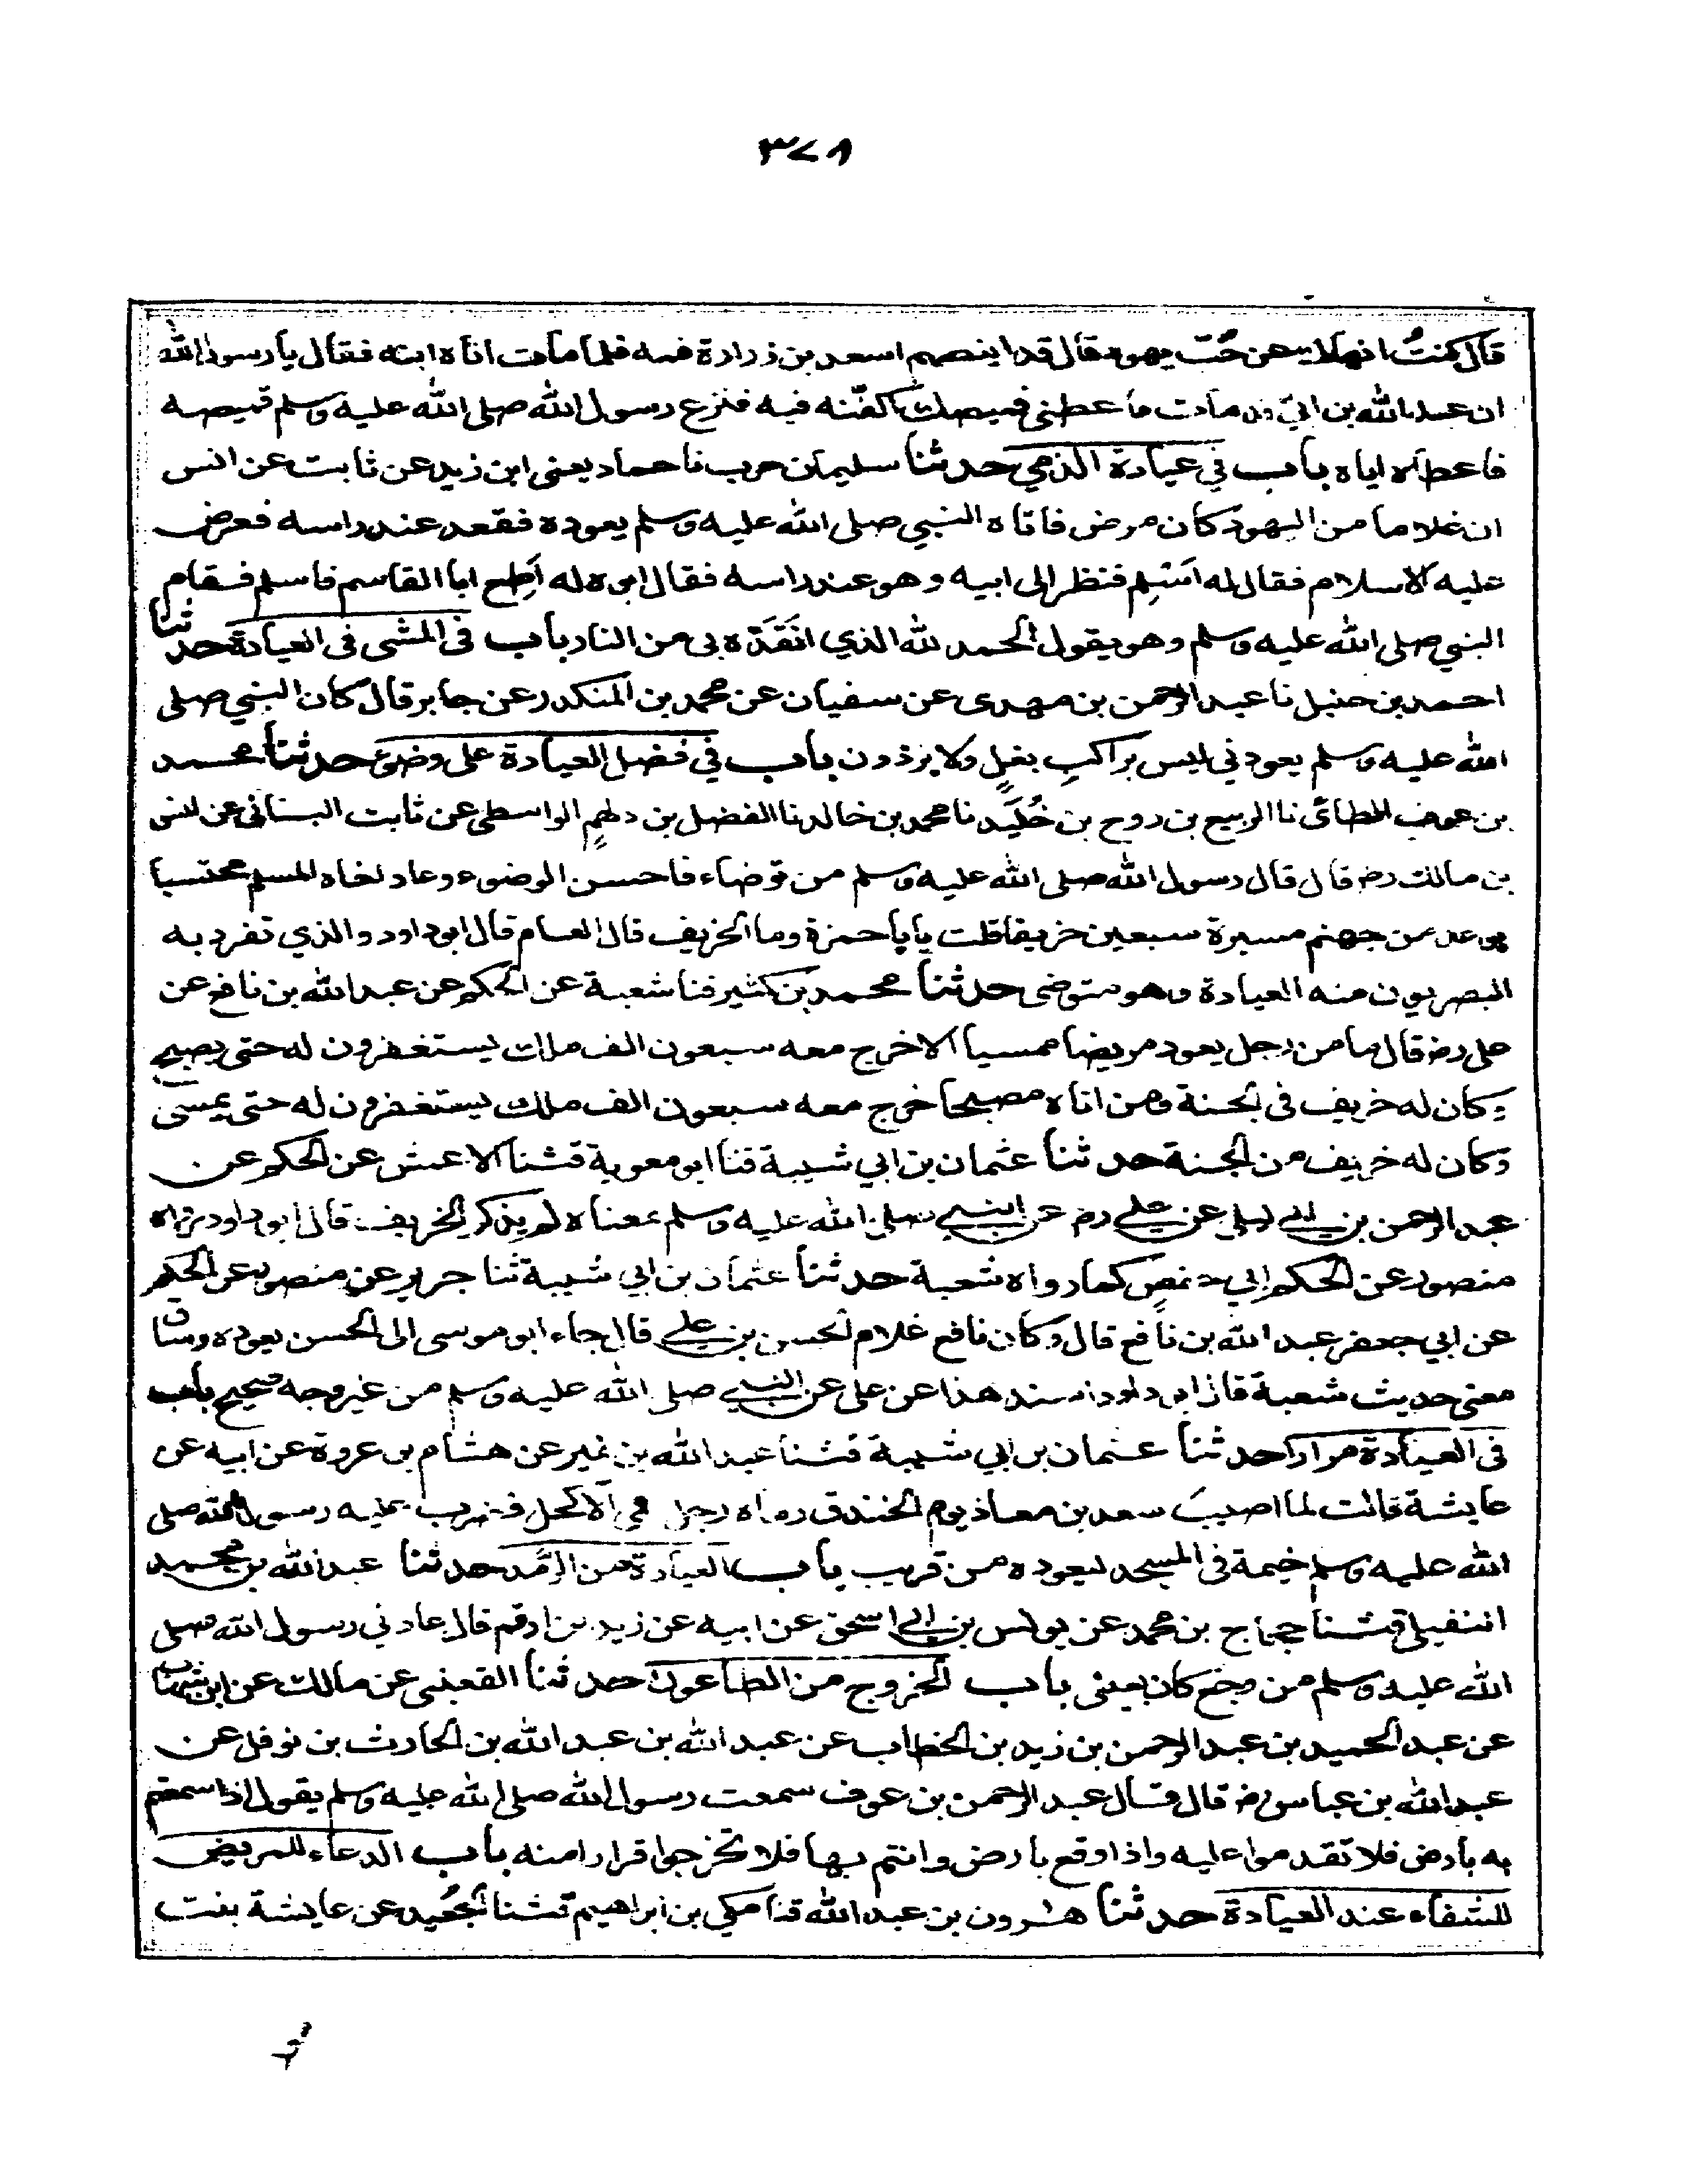 ٣٧٨
قال كنتُ انهاك عن حُبّ يهود قال قد ابغضهم اسعد بن زرارة فمه فلما مات اتاه ابنه فقال يا رسول الله
ان عبد الله بن ابيّ قد مات فاعطني قميصك اكفّنه فيه فنزع رسول الله صلى الله عليه وسلم قميصه
فاعطاه اياه باب في عيادة الذمي حدثنا سليمان حرب نا حماد يعنى ابن زيد عن ثابت عن انس
ان غلاما من اليهود كان مرض فاتاه النبي صلى الله عليه وسلم يعوده فقعد عند راسه فعرض
عليه الاسلام فقال له اسْلِم فنظر الى ابيه وهو عند راسه فقال ابوه له اَطِع ابا القاسم فاسلم فقام
النبي صلى الله عليه وسلم وهو يقول الحمد لله الذي انَقَذَه بى من النار باب فى المشى فى العيادة حدثنا
احمد بن حنبل نا عبد الرحمن بن مهدى عن سفيان عن محمد بن المنكدر عن جابر قال كان النبي صلى
الله عليه وسلم يعودني ليس براكبِ بغلٍ ولا برذون باب في فضل العيادة على وضوء حدثنا محمد
بن عوف الطائى نا الربيع بن روح بن خُلَيد نا محمد بن خالد نا الفضل بن دلهمٍ الواسطى عن ثابت البنانى عن انس
بن مالك رض قال قال رسول الله صلى الله عليه وسلم من توضاء فاحسن الوضوء وعاد اخاه المسلم محتسبا
بوعد من جهنم مسيرة سبعين خريفا قلت يا ابا حمزة وما الخريف قال العام قال ابو داود والذي تفرد به
البصريون منه العيادة وهو متوضى حدثنا محمد بن كثير قنا شعبة عن الحكم عن عبد الله بن نافع عن
على رض قال ما من رجل يعود مريضا ممسيا الا خرج معه سبعون الف ملك يستغفرون له حتى يصبح
وكان له خريف فى الجنة ومن اتاه مصبحا خرج معه سبعون الف ملك يستغفرون له حتى يمسى
وكان له خريف من الجنة حدثنا عثمان بن ابي شيبة قنا ابو معوية قثنا الاعمش عن الحكم عن
عبد الرحمن بن ابي ليلى عن علي رض عن النبي صلى الله عليه وسلم بمعناه لم يذكر الخريف قال ابو داود رواه
منصور عن الحكم ابي حفص كما رواه شعبة حدثنا عثمان بن ابي شيبة ثنا جرير عن منصور عن الحكم
عن ابي جعفر عبد الله بن نافع قال وكان نافع غلام الحسن بن علي قال جاء ابو موسى الى الحسن يعوده وساق
معنى حديث شعبة قال ابو داود اسند هذا عن على عن النبي صلى الله عليه وسلم من غير وجه صحيح باب
فى العيادة مرارا حدثنا عثمان بن ابي شيبة قثنا عبد الله بن نمير عن هشام بن عروة عن ابيه عن
عايشة قالت لما اصيبَ سعد بن معاذ يوم الخندق رماه رجل في الاكحل فضرب عليه رسول الله صلى
الله عليه وسلم خيمة فى المسجد ليعوده من قريب باب العيادة من الرَّمَد حدثنا عبد الله بن محمد
النفيلى قثنا حجاج بن محمد عن يونس بن ابي اسحق عن ابيه عن زيد بن ارقم قال عادني رسول الله صلى
الله عليه وسلم من وجع كان بعينى باب الخروج من الطاعون حدثنا القعنبى عن مالك عن ابن شهاب
عن عبد الحميد بن عبد الرحمن بن زيد بن الخطاب عن عبد الله بن عبد الله بن الحارث بن نوفل عن
عبد الله بن عباس رض قال قال عبد الرحمن بن عوف سمعت رسول الله صلى الله عليه وسلم يقول اذا سمعتم
به بارض فلا تقدموا عليه واذا وقع بارض وانتم بها فلا تخرجوا قرارا منه باب الدعاء للمريض
للشفاء عند العيادة حدثنا هرون بن عبد الله قنا مكي بن ابراهيم قثنا الجُعَيد عن عايشة بنت